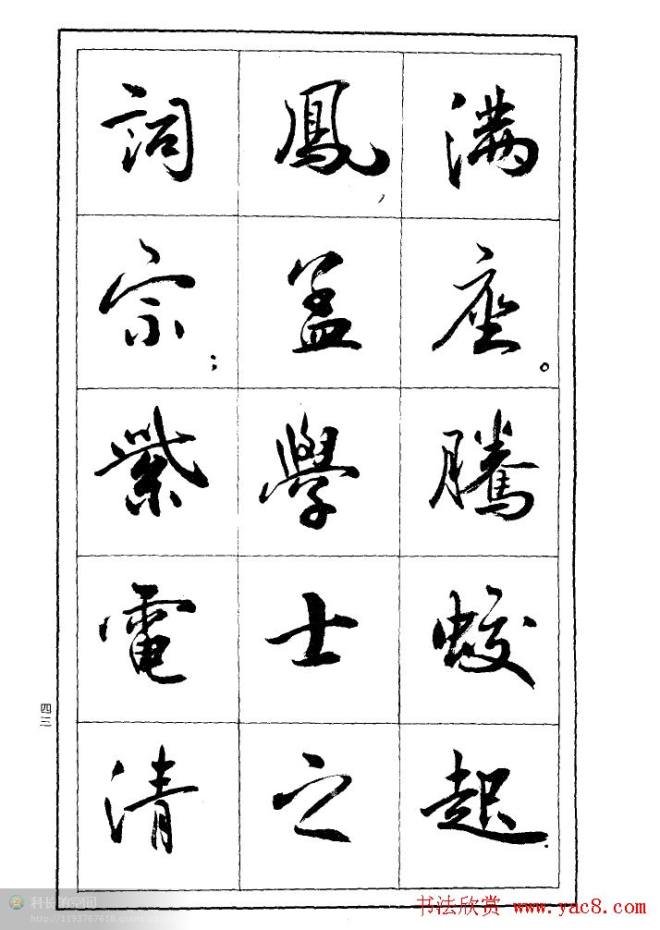 满座。腾蛟起
鳳，孟學士之
詞宗；紫電清
四三
书法欣赏 www.yac8.com